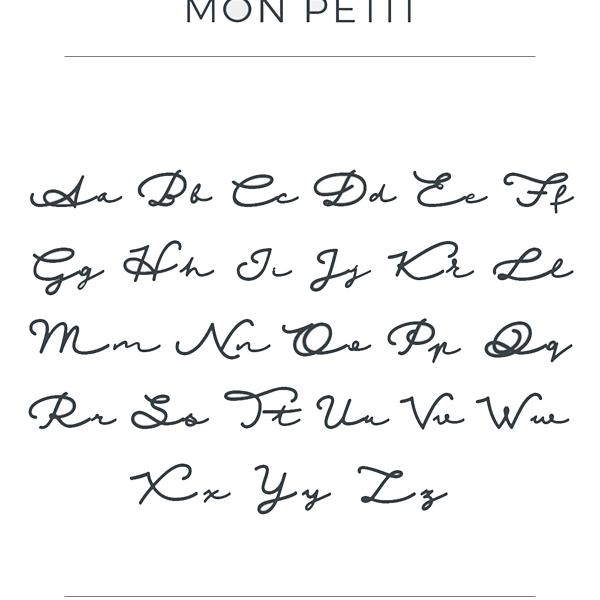 MON PETIT
Aa Bb Cc Dd Ee Ff
Gg Hh Ii Jj Kk Ll
Mm Nn Oo Pp Qq
Rr Ss Tt Uu Vv Ww
Xx Yy Zz